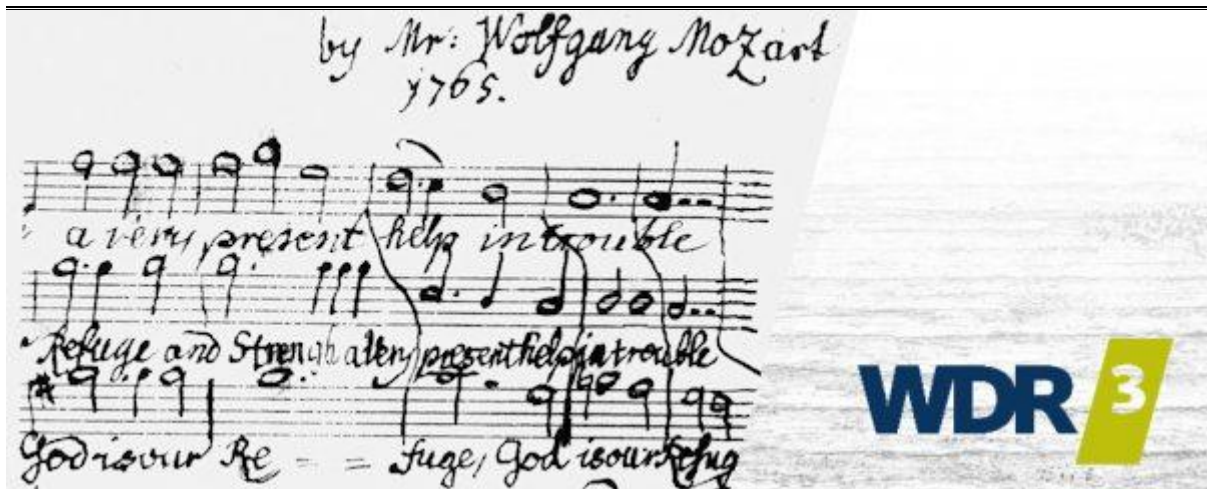 by Mr: Wolfgang Mozart
1765.
a very present help in trouble
Refuge and Strength a Very present help in a trouble
God is our Re - = fuge, God is our Refug
WDR 3